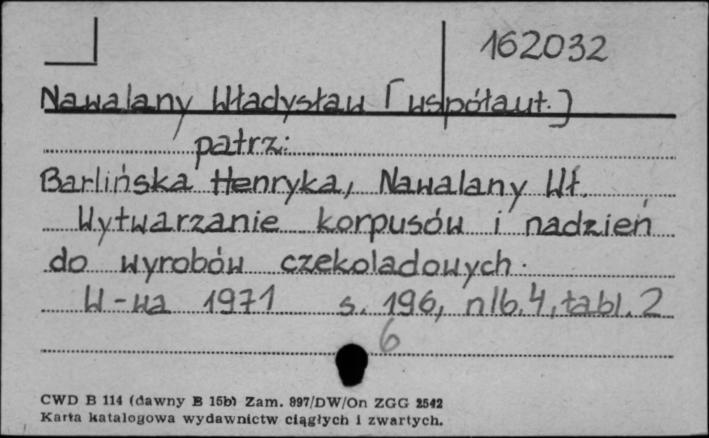 162032
Nawalany Władysław [współaut.]
patrz:
Barlińska Henryka, Nawalany Wł.
Wytwarzanie korpusów i nadzień
do wyrobów czekoladowych.
W-wa 1971 s. 196, nlb. 4, tabl. 2
6
CWD B 114 (dawny B 15b) Zam. 897/DW/On ZGG 2542
Karta katalogowa wydawnictw ciągłych i zwartych.